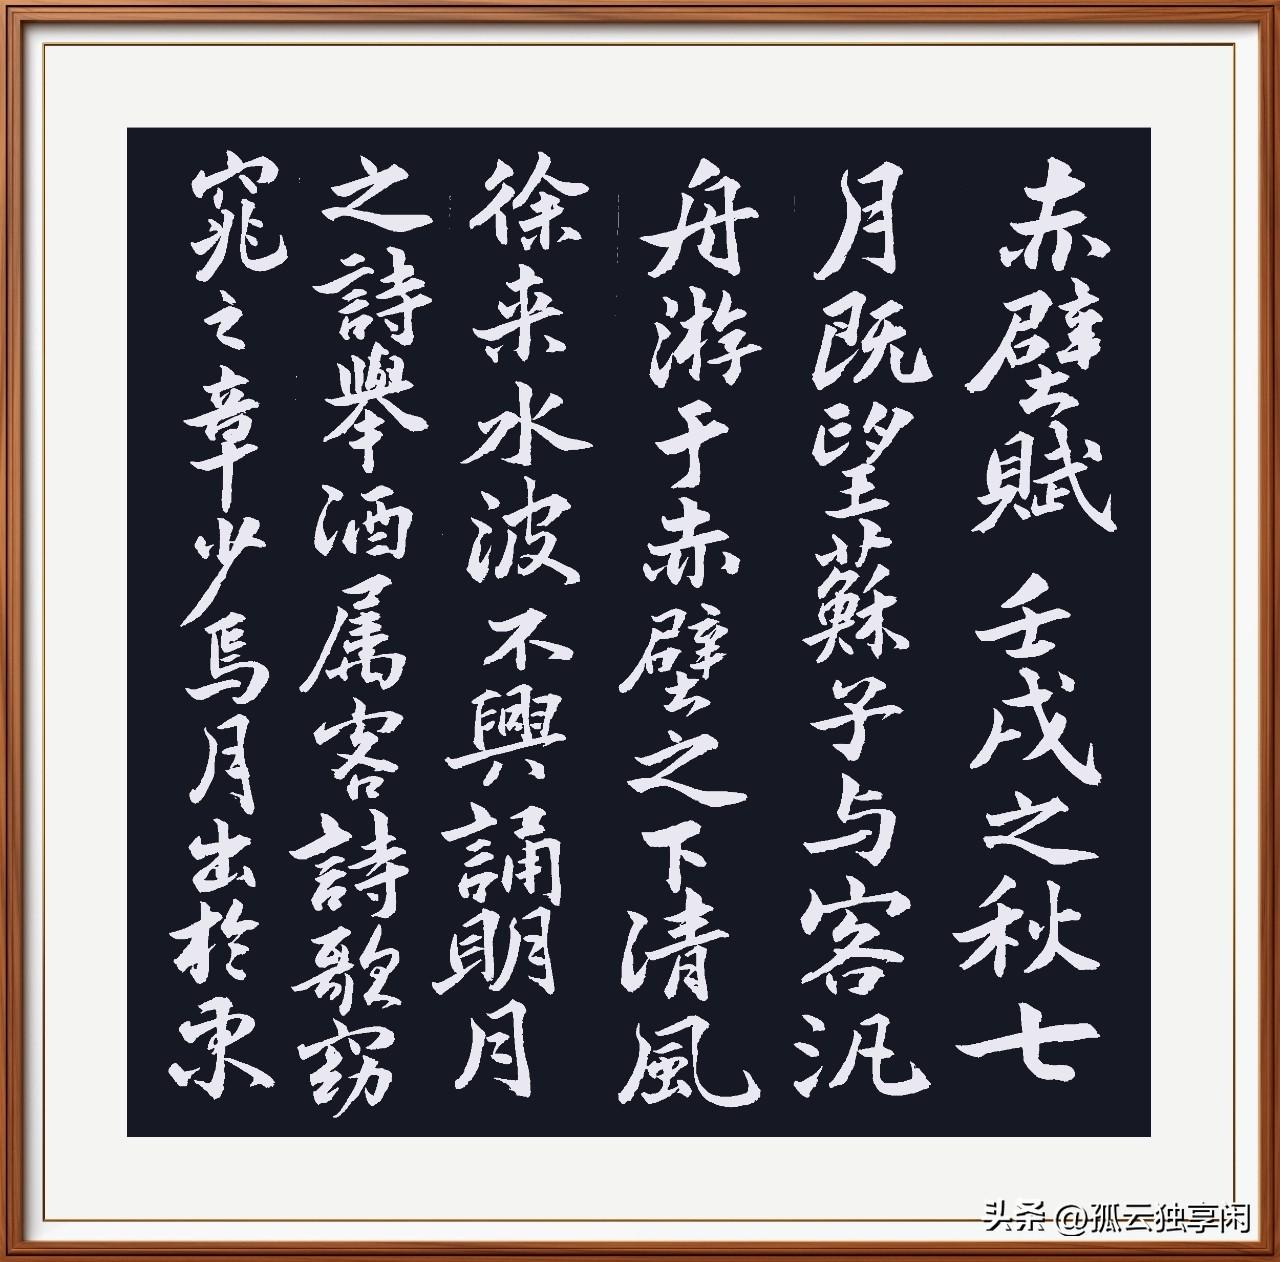 赤壁賦 壬戌之秋七
月既望蘇子与客汎
舟游于赤壁之下清風
徐来水波不興誦明月
之詩舉酒属客詩歌窈
窕之章少焉月出於東
头条 @孤云独享闲